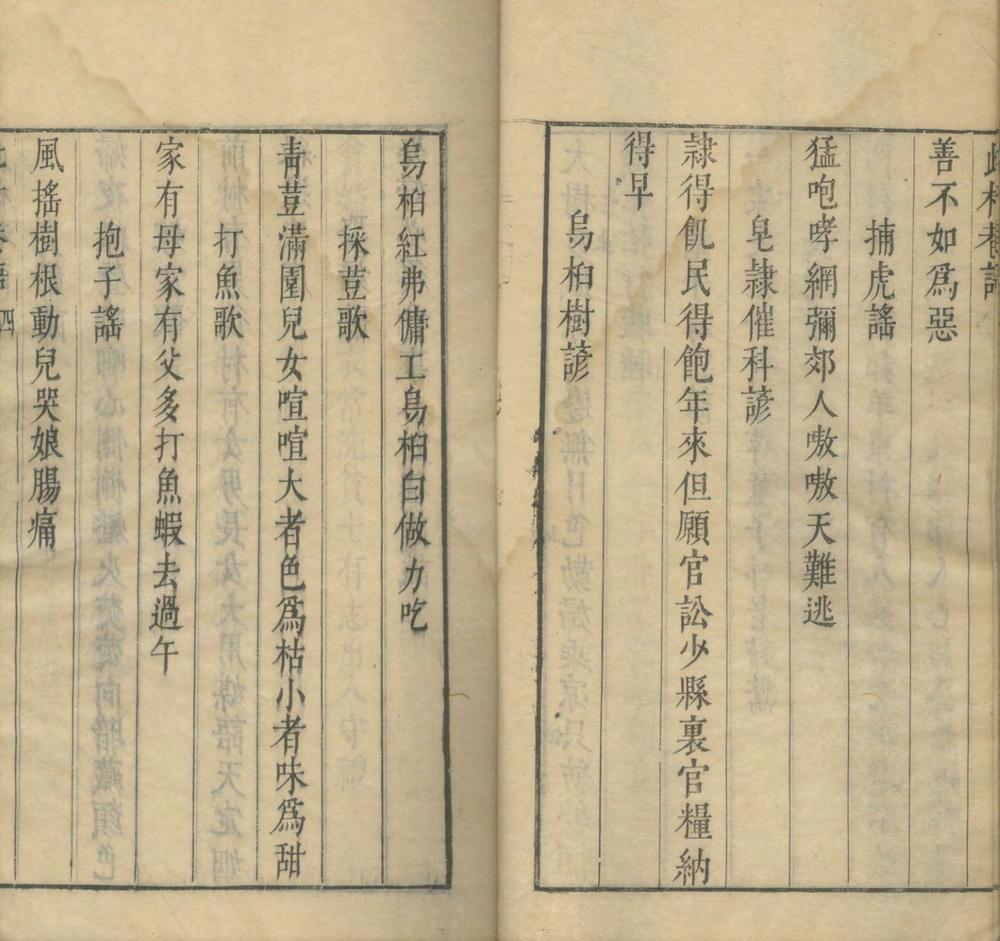 善不如爲惡
捕虎謠
猛咆哮網彌郊人嗷嗷天難逃
皂隷催科諺
隷得飢民得飽年來但願官訟少縣裏官糧納
得早
烏桕樹諺
烏桕紅弗傭工烏桕白做力吃
採荳歌
青荳滿園兒女喧喧大者色爲枯小者味爲甜
打魚歌
家有母家有父多打魚蝦去過午
抱子謠
風搖樹根動兒哭娘腸痛